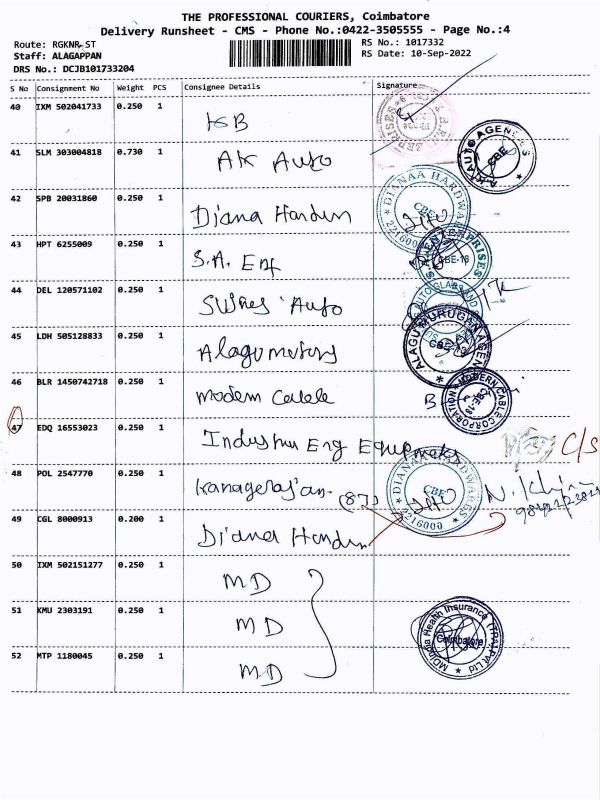 THE PROFESSIONAL COURIERS, Coimbatore
Delivery Runsheet - CMS - Phone No.:0422-3505555 - Page No.:4
Route: RGKNR-ST
RS No.: 1017332
Staff: ALAGAPPAN
RS Date: 10-Sep-2022
DRS No.: DCJB101733204
S No Consignment No Weight PCS Consignee Details Signature
40 IXM 502041733 0.250 1 KGB
41 SLM 303004818 0.730 1 AK Auto
A.K. AUTO AGENCIES CBE
42 SPB 20031860 0.250 1 Diana Hardwn
DIANAA HARDWARES CBE 2216000
43 HPT 6255009 0.250 1 S.A. Ent
ENTERPRISES CBE-18
44 DEL 120571102 0.250 1 Auto
AUTO GLASS AND
45 LDH 505128833 0.250 1 Alagumotors
ALAGU MURUGAN AGEN
46 BLR 1450742718 0.250 1 Modern Cable
B.
MODERN CABLE CORPORATION
47 EDQ 16553023 0.250 1 Eng Equipments
C/S
48 POL 2547770 0.250 1 Kanagarajan (87)
DIANAA HARDWARES CBE 2216000
49 CGL 8000913 0.200 1 Diana Hardwn
50 IXM 502151277 0.250 1 MD
51 KMU 2303191 0.250 1 MD
MDIndia Health Insurance (TPA) Pvt Ltd Coimbatore
52 MTP 1180045 0.250 1 MD